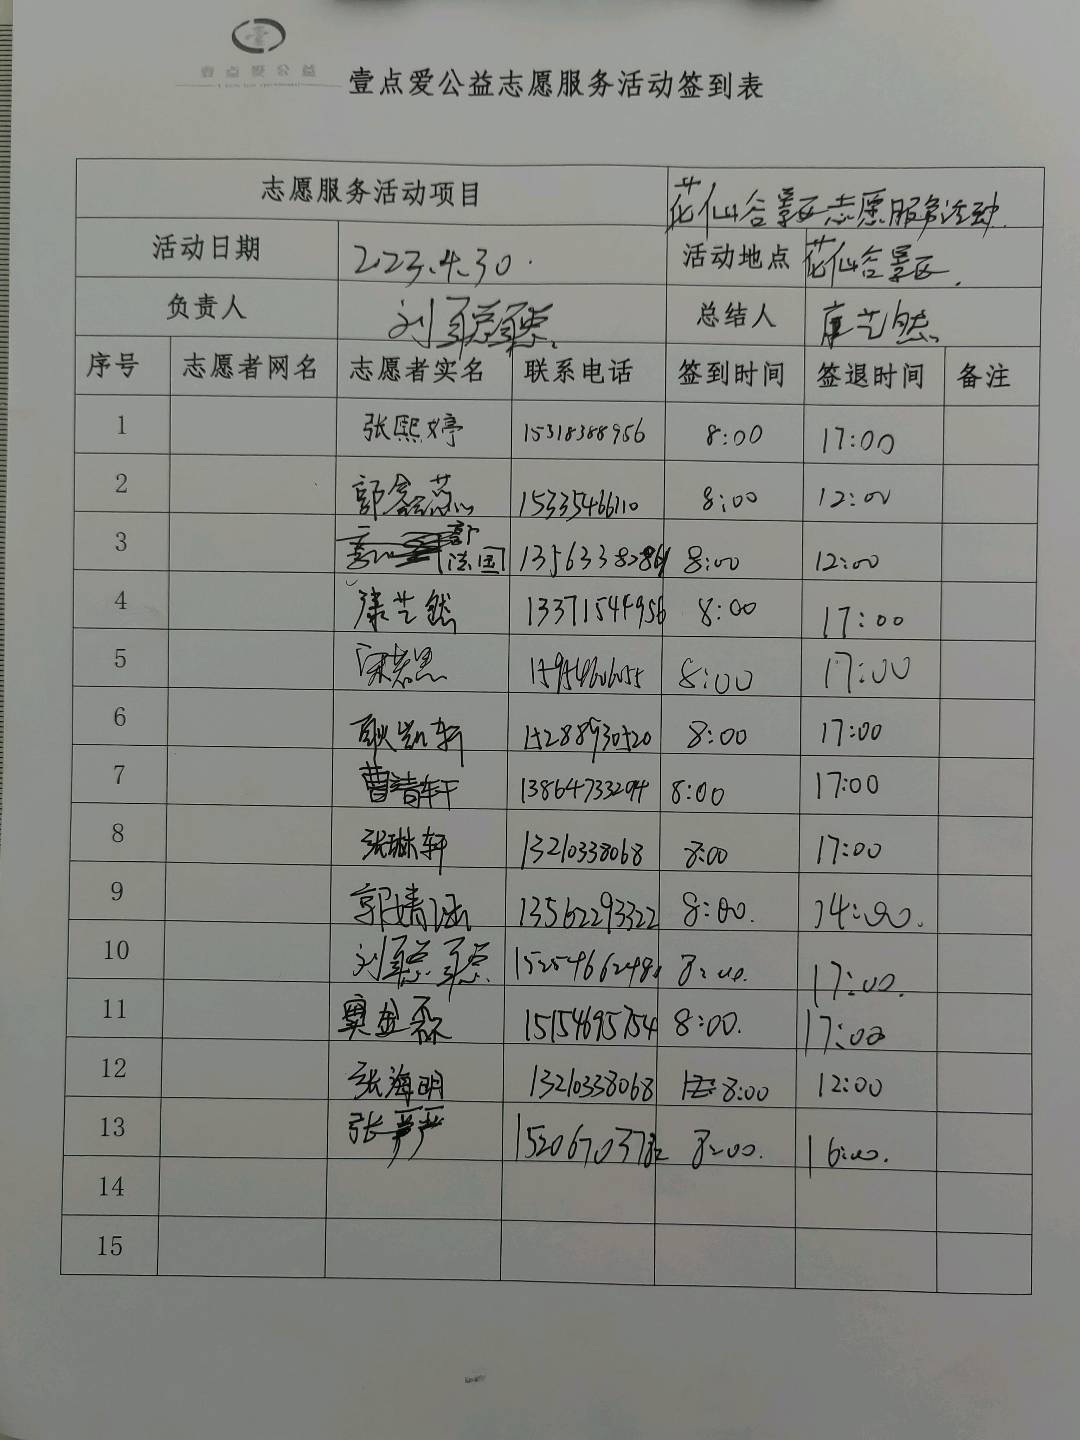 壹点爱公益
壹点爱公益志愿服务活动签到表
志愿服务活动项目 花仙谷景区志愿服务活动.
活动日期 2023.4.30. 活动地点 花仙谷景区.
负责人 刘聪聪. 总结人 康艺然.
序号 志愿者网名 志愿者实名 联系电话 签到时间 签退时间 备注
1 张熙婷 15318388956 8:00 17:00
2 郭鑫蕊 15335466110 8:00 12:00
3 郭法国 8:00 12:00
4 康艺然 13371544956 8:00 17:00
5 宋若思 15954606055 8:00 17:00
6 耿凯轩 15288930520 8:00 17:00
7 曹清轩 13864733294 8:00 17:00
8 张琳轩 13210338068 8:00 17:00
9 郭婧涵 13562293322 8:00. 14:00.
10 刘聪聪. 8:00. 17:00.
11 窦金霖 15154695754 8:00. 17:00
12 张海明 13210338068 8:00 12:00
13 张严严 8:00. 16:00.
14
15